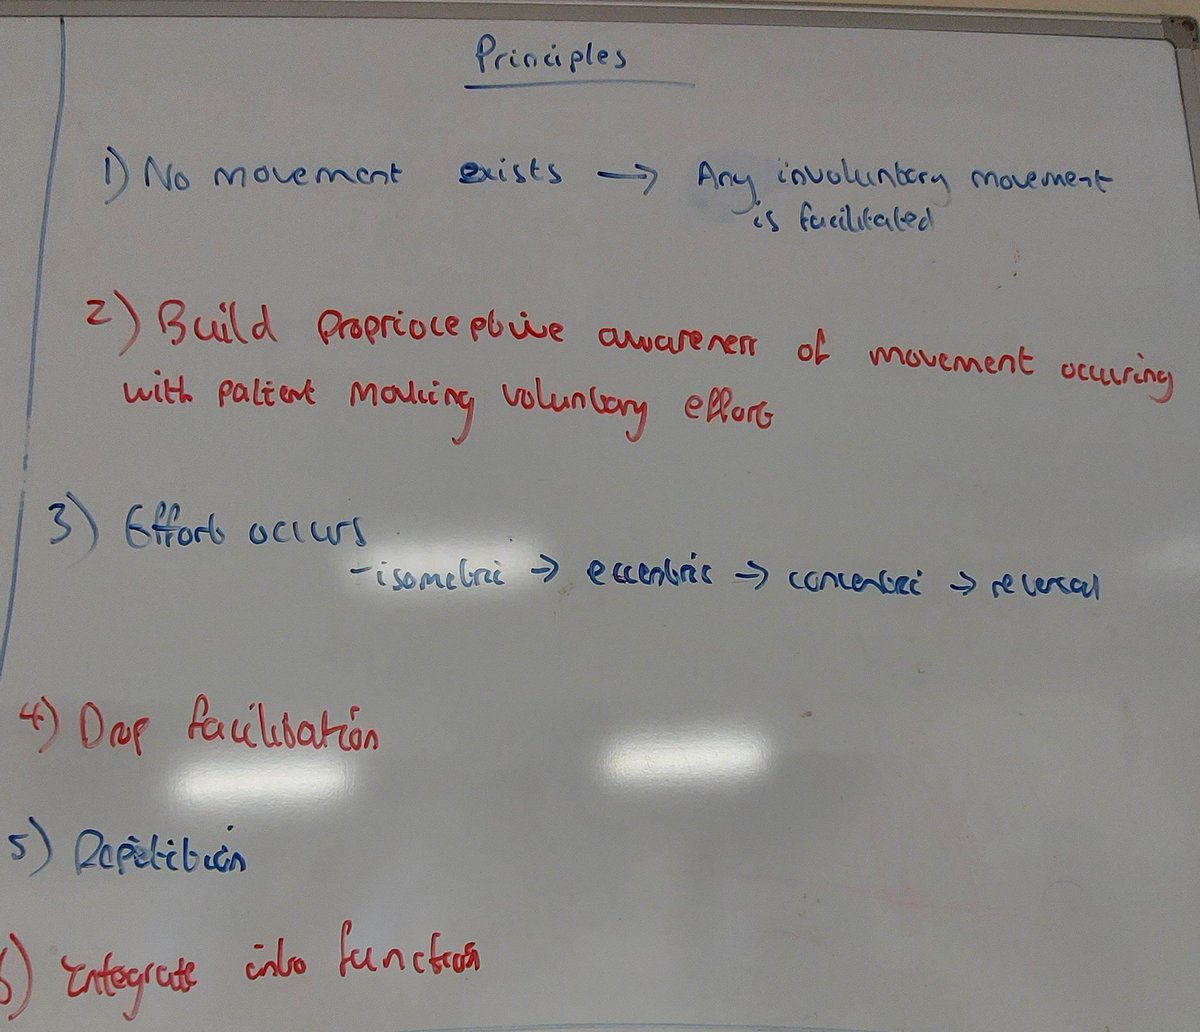 Principles
1) No movement exists → Any involuntary movement
is facilitated
2) Build proprioceptive awareness of movement occuring
with patient making voluntary effort
3) Effort occurs
- isometric → eccentric → concentric → reversal
4) Drop facilitation
5) Repetition
6) Integrate into function